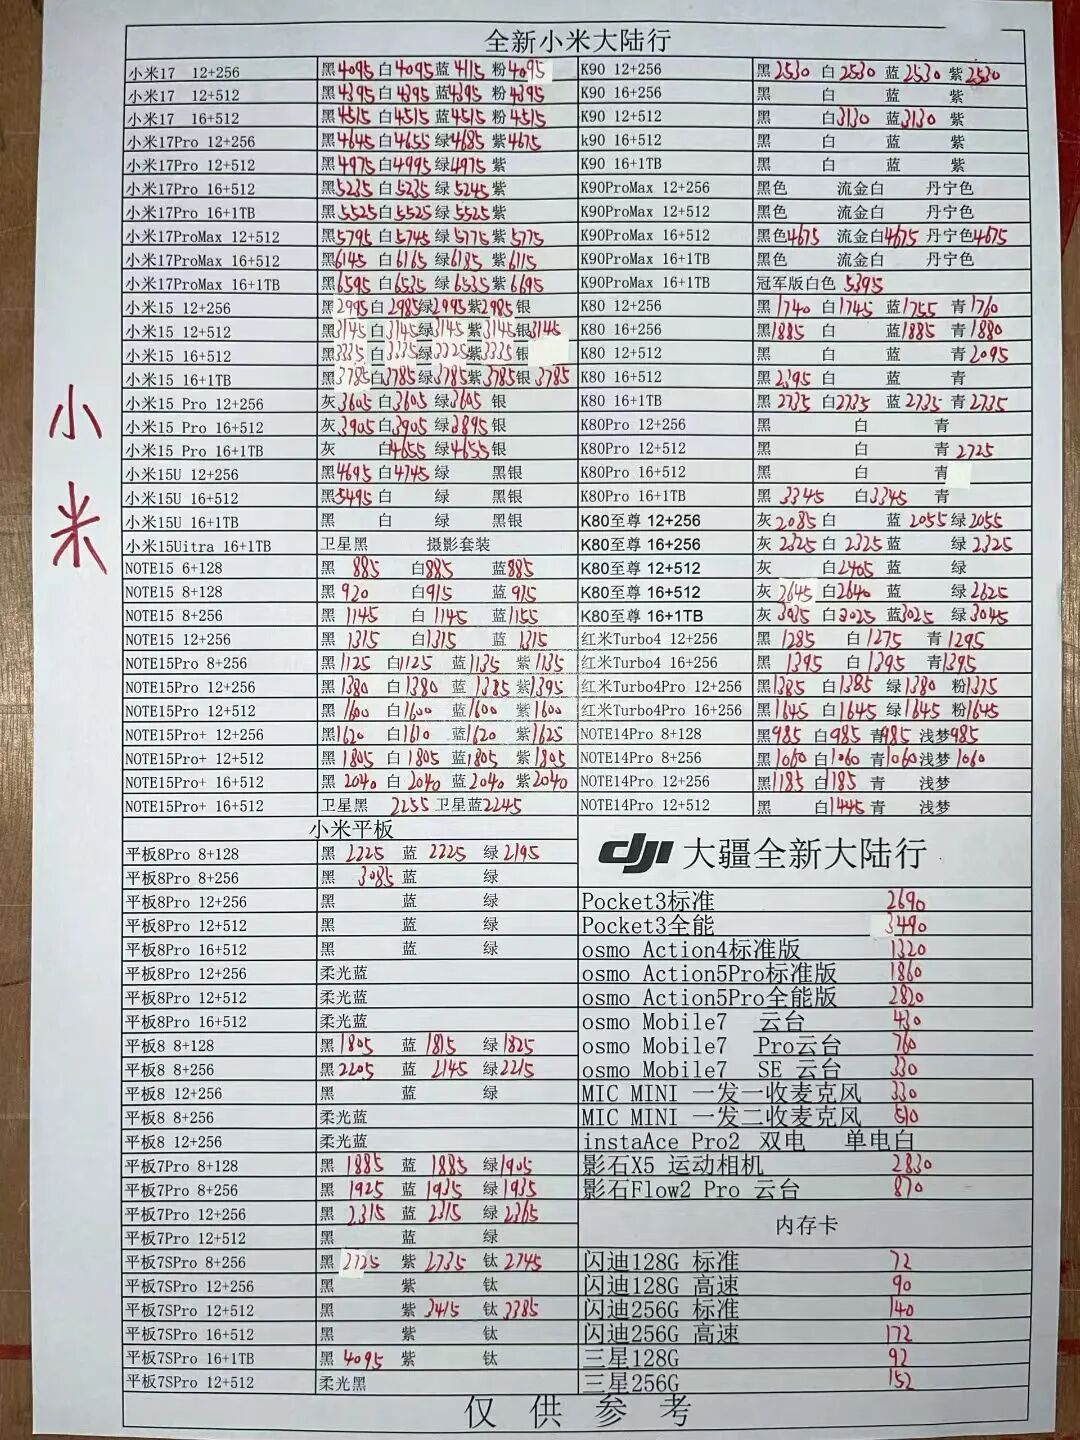 全新小米大陆行
小米
小米17 12+256 黑4095 白4095 蓝4115 粉4095
小米17 12+512 黑4395 白4395 蓝4395 粉4395
小米17 16+512 黑4515 白4515 蓝4515 粉4515
小米17Pro 12+256 黑4645 白4655 绿4685 紫4675
小米17Pro 12+512 黑4975 白4995 绿4975 紫
小米17Pro 16+512 黑5235 白5235 绿5245 紫
小米17Pro 16+1TB 黑5525 白5525 绿5525 紫
小米17ProMax 12+512 黑5795 白5745 绿5775 紫5775
小米17ProMax 16+512 黑6145 白6165 绿6185 紫6115
小米17ProMax 16+1TB 黑6595 白6535 绿6535 紫6695
小米15 12+256 黑2995 白2985 绿2995 紫2985 银
小米15 12+512 黑3145 白3145 绿3145 紫3145 银3145
小米15 16+512 黑3335 白3335 绿3325 紫3335 银
小米15 16+1TB 黑3785 白3785 绿3785 紫3785 银3785
小米15 Pro 12+256 灰3605 白3605 绿3605 银
小米15 Pro 16+512 灰3905 白3905 绿3895 银
小米15 Pro 16+1TB 灰 白4655 绿4655 银
小米15U 12+256 黑4695 白4745 绿 黑银
小米15U 16+512 黑5495 白 绿 黑银
小米15U 16+1TB 黑 白 绿 黑银
小米15Uitra 16+1TB 卫星黑 摄影套装
NOTE15 6+128 黑 885 白885 蓝885
NOTE15 8+128 黑 920 白915 蓝 915
NOTE15 8+256 黑 1145 白 1145 蓝1155
NOTE15 12+256 黑 1315 白1315 蓝 1315
NOTE15Pro 8+256 黑1125 白1125 蓝1135 紫1135
NOTE15Pro 12+256 黑1380 白1380 蓝1385 紫1395
NOTE15Pro 12+512 黑1600 白1600 蓝1600 紫1600
NOTE15Pro+ 12+256 黑1620 白1610 蓝1620 紫1625
NOTE15Pro+ 12+512 黑1805 白1805 蓝1805 紫1805
NOTE15Pro+ 16+512 黑2040 白2040 蓝2040 紫2040
NOTE15Pro+ 16+512 卫星黑 2255 卫星蓝2245
小米平板
平板8Pro 8+128 黑 2225 蓝 2225 绿2195
平板8Pro 8+256 黑 3085 蓝 绿
平板8Pro 12+256 黑 蓝 绿
平板8Pro 12+512 黑 蓝 绿
平板8Pro 16+512 黑 蓝 绿
平板8Pro 12+256 柔光蓝
平板8Pro 12+512 柔光蓝
平板8Pro 16+512 柔光蓝
平板8 8+128 黑1805 蓝 1815 绿1825
平板8 8+256 黑2205 蓝 2145 绿2215
平板8 12+256 黑 蓝 绿
平板8 8+256 柔光蓝
平板8 12+256 柔光蓝
平板7Pro 8+128 黑 1885 蓝 1885 绿1905
平板7Pro 8+256 黑 1925 蓝1935 绿1935
平板7Pro 12+256 黑 2315 蓝 2315 绿2365
平板7Pro 12+512 黑 蓝 绿
平板7SPro 8+256 黑 2725 紫 2735 钛 2745
平板7SPro 12+256 黑 紫 钛
平板7SPro 12+512 黑 紫 3415 钛 3385
平板7SPro 16+512 黑 紫 钛
平板7SPro 16+1TB 黑 4095 紫 钛
平板7SPro 12+512 柔光黑
K90 12+256 黑2530 白2530 蓝2530 紫2530
K90 16+256 黑 白 蓝 紫
K90 12+512 黑 白3130 蓝3130 紫
k90 16+512 黑 白 蓝 紫
K90 16+1TB 黑 白 蓝 紫
K90ProMax 12+256 黑色 流金白 丹宁色
K90ProMax 12+512 黑色 流金白 丹宁色
K90ProMax 16+512 黑色4675 流金白4675 丹宁色4675
K90ProMax 16+1TB 黑色 流金白 丹宁色
K90ProMax 16+1TB 冠军版白色 5395
K80 12+256 黑1740 白1745 蓝1755 青1760
K80 16+256 黑1885 白 蓝1885 青1880
K80 12+512 黑 白 蓝 青2095
K80 16+512 黑2395 白 蓝 青
K80 16+1TB 黑2735 白2735 蓝2735 青2735
K80Pro 12+256 黑 白 青
K80Pro 12+512 黑 白 青 2725
K80Pro 16+512 黑 白 青
K80Pro 16+1TB 黑 3345 白3345 青
K80至尊 12+256 灰2085 白 蓝 2055 绿2055
K80至尊 16+256 灰2325 白2325 蓝 绿2325
K80至尊 12+512 灰 白2405 蓝 绿
K80至尊 16+512 灰 2645 白2640 蓝 绿2625
K80至尊 16+1TB 灰3035 白3025 蓝3025 绿3045
红米Turbo4 12+256 黑 1285 白1275 青1295
红米Turbo4 16+256 黑 1395 白1395 青1395
红米Turbo4Pro 12+256 黑1385 白1385 绿1380 粉1375
红米Turbo4Pro 16+256 黑1645 白1645 绿1645 粉1645
NOTE14Pro 8+128 黑985 白985 青985 浅梦985
NOTE14Pro 8+256 黑1060 白1060 青1060 浅梦1060
NOTE14Pro 12+256 黑1185 白1185 青 浅梦
NOTE14Pro 12+512 黑 白1445 青 浅梦
dji 大疆全新大陆行
Pocket3标准 2690
Pocket3全能 3490
osmo Action4标准版 1320
osmo Action5Pro标准版 1860
osmo Action5Pro全能版 2820
osmo Mobile7 云台 430
osmo Mobile7 Pro云台 760
osmo Mobile7 SE 云台 330
MIC MINI 一发一收麦克风 330
MIC MINI 一发二收麦克风 510
instaAce Pro2 双电 单电白
影石X5 运动相机 2830
影石Flow2 Pro 云台 870
内存卡
闪迪128G 标准 72
闪迪128G 高速 90
闪迪256G 标准 140
闪迪256G 高速 172
三星128G 92
三星256G 152
仅供参考